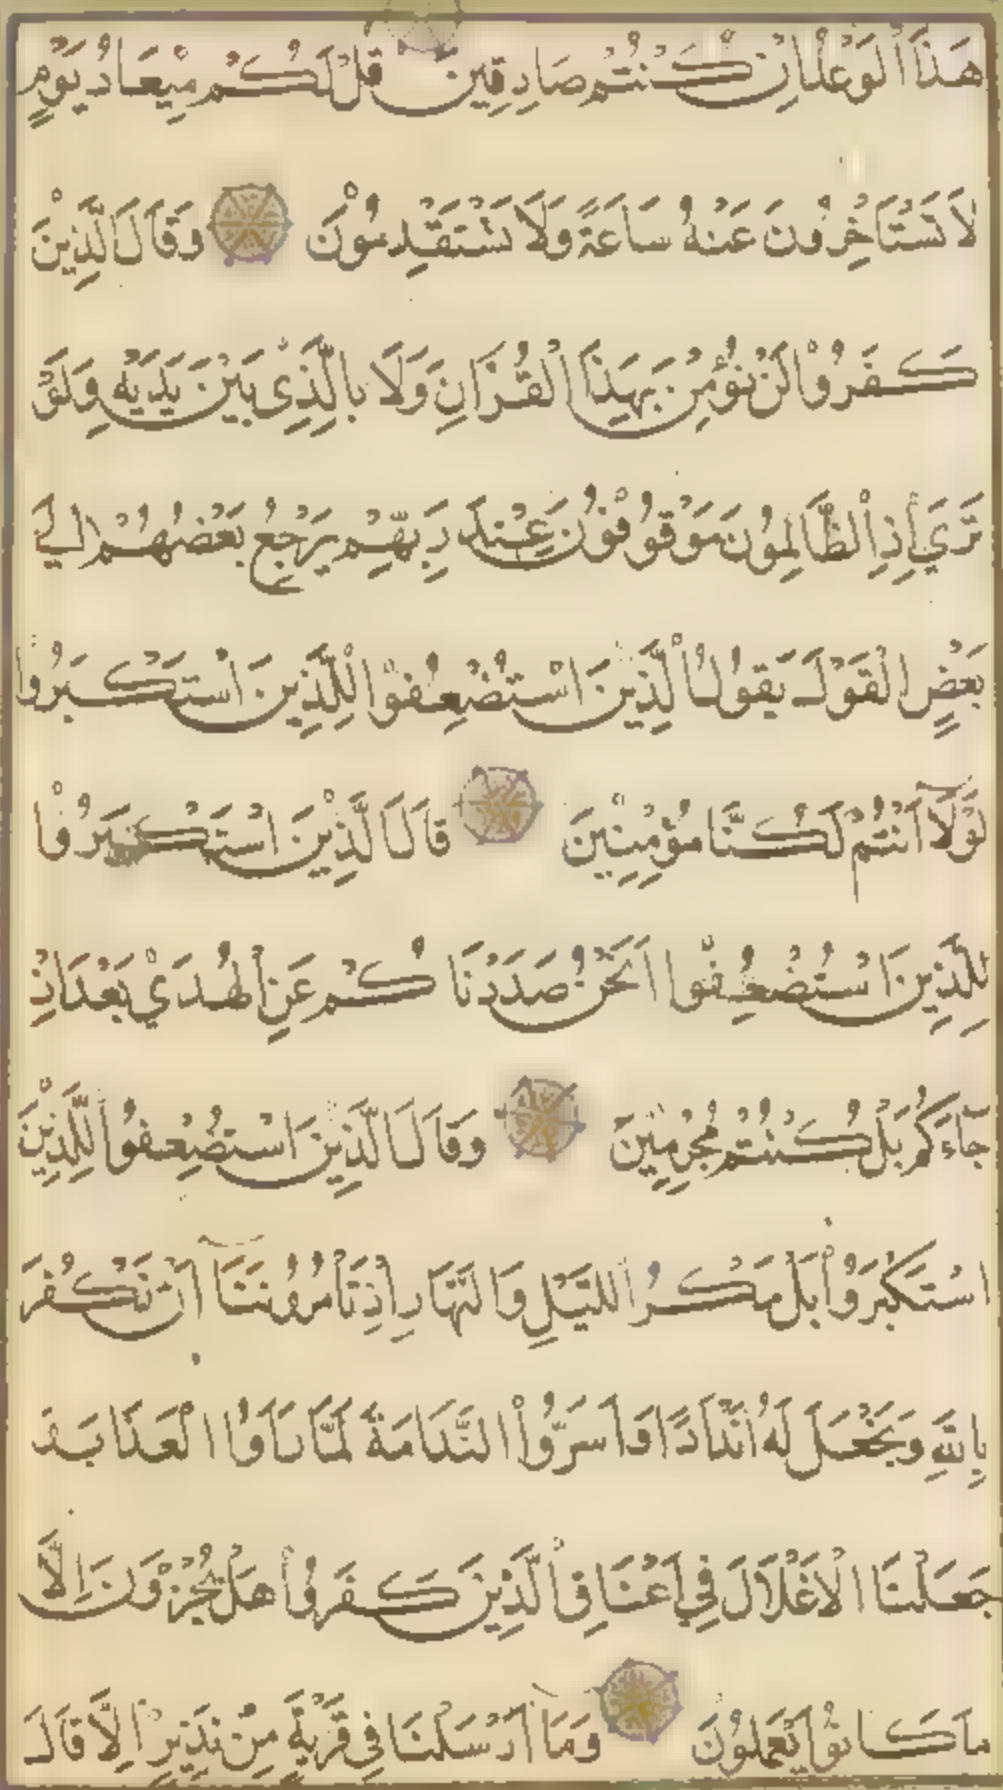 هَذَا الْوَعْدُ إِنْ كُنْتُمْ صَادِقِينَ قُلْ لَكُمْ مِيْعَادُ يَوْمٍ
لَا تَسْتَأْخِرُونَ عَنْهُ سَاعَةً وَلَا تَسْتَقْدِمُوْنَ وَقَالَ الَّذِيْنَ
كَفَرُوْا لَنْ نُؤْمِنَ بِهَذَا الْقُرْآنِ وَلَا بِالَّذِي بَيْنَ يَدَيْهِ وَلَوْ
تَرَىٰ إِذِ الظَّالِمُونَ مَوْقُوْفُوْنَ عِنْدَ رَبِّهِمْ يَرْجِعُ بَعْضُهُمْ إِلَى
بَعْضٍ الْقَوْلَ يَقُولُ الَّذِينَ اسْتُضْعِفُوْا لِلَّذِينَ اسْتَكْبَرُوا
لَوْلَا أَنْتُمْ لَكُنَّا مُؤْمِنِيْنَ قَالَ الَّذِيْنَ اسْتَكْبَرُوْا
لِلَّذِينَ اسْتُضْعِفُوا أَنَحْنُ صَدَدْنَا كُمْ عَنِ الْهُدَىٰ بَعْدَ إِذْ
جَآءَكُمْ بَلْ كُنْتُمْ مُجْرِمِيْنَ وَقَالَ الَّذِيْنَ اسْتُضْعِفُوا لِلَّذِيْنَ
اسْتَكْبَرُوْا بَلْ مَكْرُ اللَّيْلِ وَالنَّهَارِ إِذْ تَأْمُرُوْنَنَآ أَنْ نَكْفُرَ
بِاللهِ وَنَجْعَلَ لَهُ أَنْدَادًا وَأَسَرُّوْا النَّدَامَةَ لَمَّا رَأَوُا الْعَذَابَ وَ
جَعَلْنَا الْأَغْلَالَ فِي أَعْنَاقِ الَّذِينَ كَفَرُوْا هَلْ يُجْزَوْنَ إِلَّا
مَا كَانُوْا يَعْمَلُوْنَ وَمَآ أَرْسَلْنَا فِي قَرْيَةٍ مِنْ نَذِيْرٍ إِلَّا قَالَ